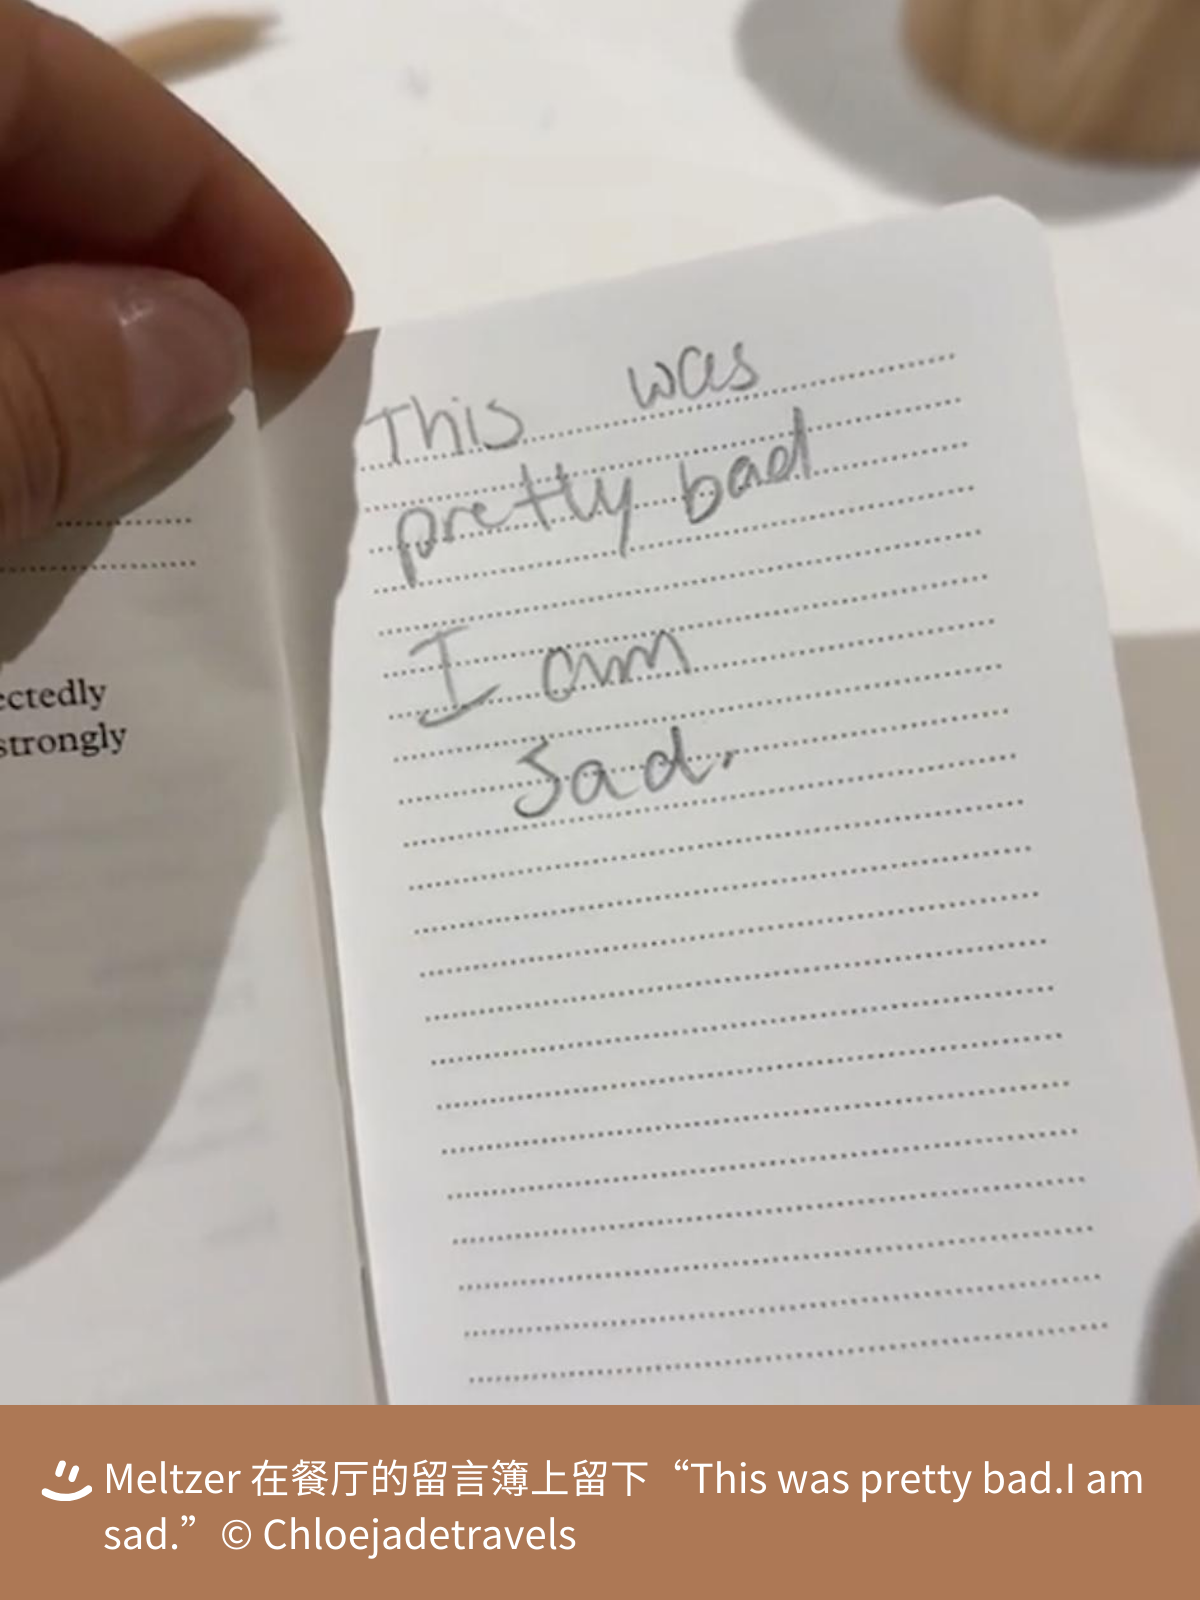 This was
pretty bad
I am
Sad.
ectedly
strongly
Meltzer 在餐厅的留言簿上留下“This was pretty bad.I am
sad.”© Chloejadetravels